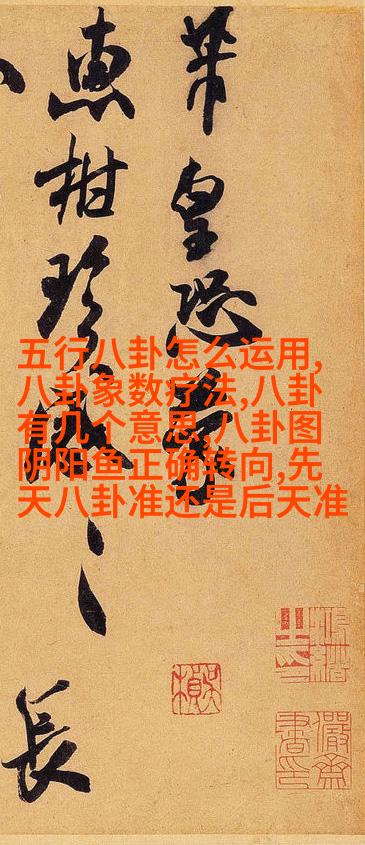 芾皇恐
惠柑珍感〻長
五行八卦怎么运用,
八卦象数疗法,八卦
有几个意思,八卦图
阴阳鱼正确转向,先
天八卦准还是后天准